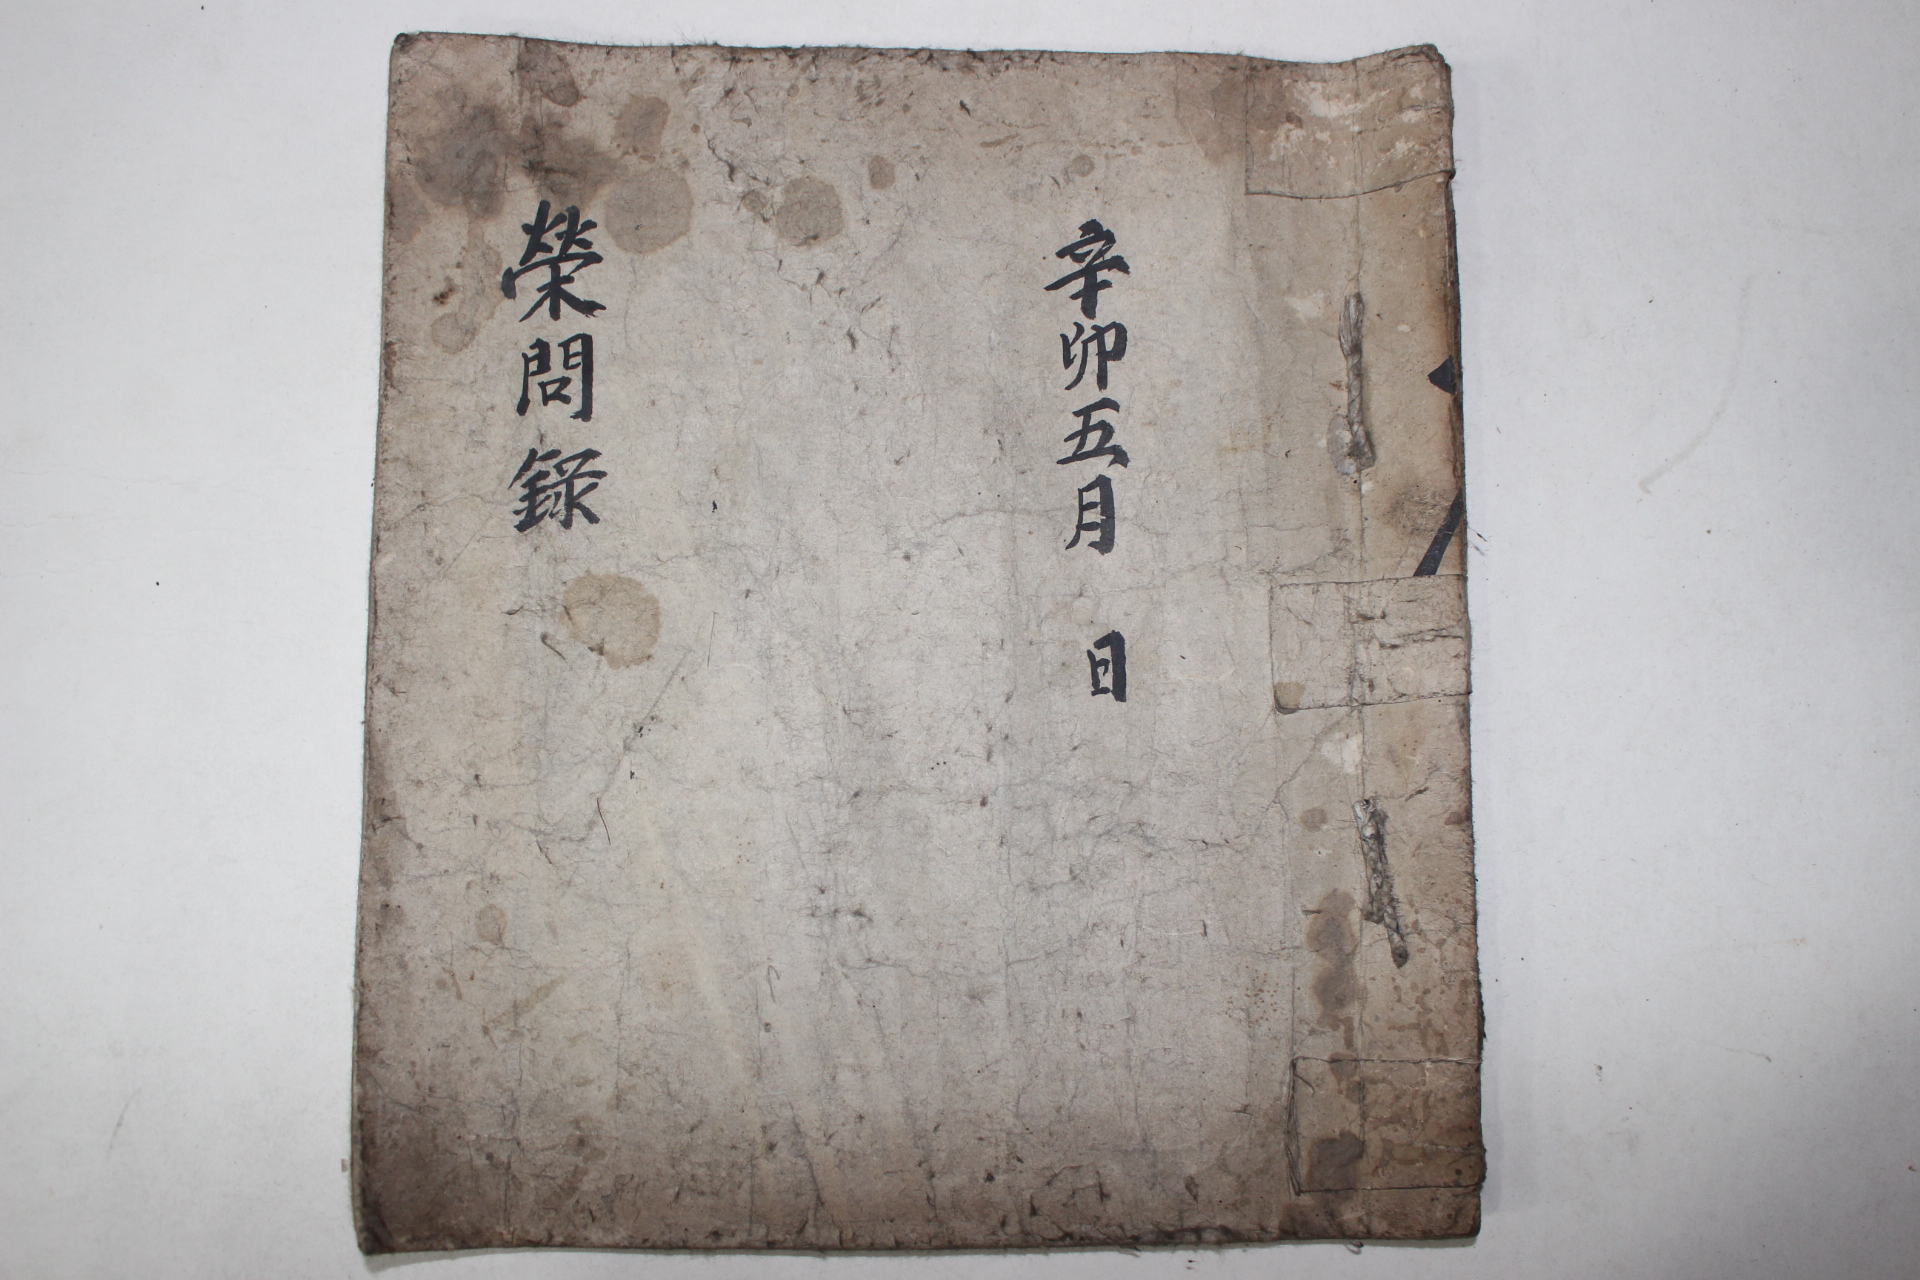 辛卯五月 日
榮問錄